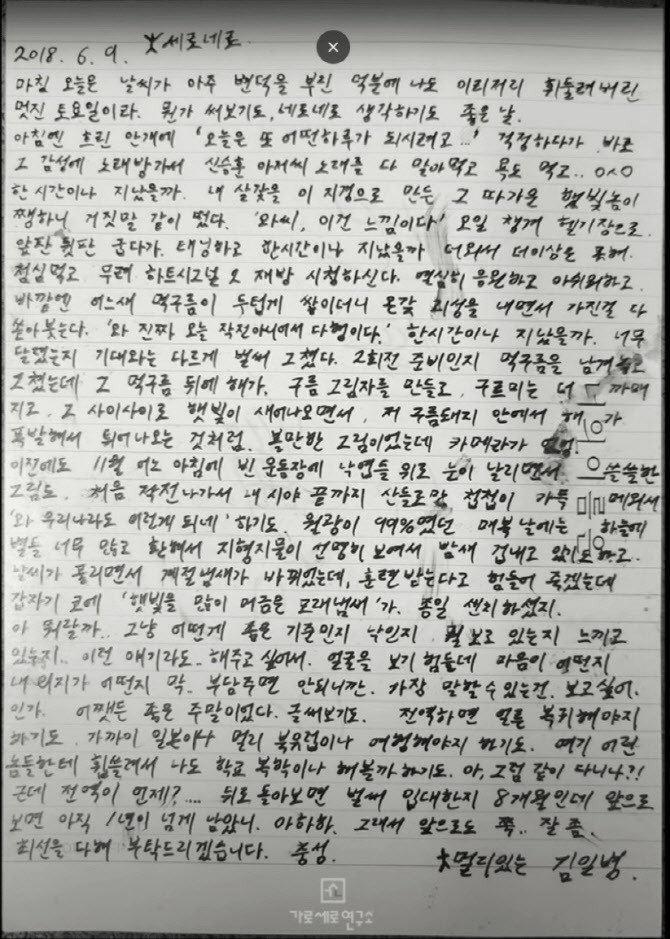 2018. 6. 9. ★세로네로.
마침 오늘은 날씨가 아주 변덕을 부린 덕분에 나도 이리저리 휘둘려버린
멋진 토요일이라. 뭔가 써보기도, 네로네로 생각하기도 좋은 날.
아침엔 흐린 안개에 '오늘은 또 어떤하루가 되시려고...' 걱정하다가 바로
그 감성에 노래방가서 신승훈 아저씨 노래를 다 말아먹고 욕도 먹고.. ㅇㅅㅇ
한시간이나 지났을까. 내 살갗을 이 지경으로 만든 그 따가운 햇빛놈이
쨍하니 거짓말 같이 떴다. '와씨, 이건 느낌이다' 오일 챙겨 헬기장으로.
앞판 뒷판 굽다가. 태닝하고 한시간이나 지났을까 더워서 더이상은 못해.
점심먹고 무려 하트시그널 2 재방 시청하신다. 열심히 응원하고 아쉬워하고.
바깥엔 어느새 먹구름이 두텁게 쌓이더니 온갖 괴성을 내면서 가진걸 다
쏟아붓는다. '와 진짜 오늘 작전아니여서 다행이다.' 한시간이나 지났을까. 너무
닫혔는지 기대와는 다르게 벌써 그쳤다. 2회전 준비인지 먹구름을 남겨놓고
그쳤는데 그 먹구름 뒤에 해가. 구름 그림자를 만들고, 구르미는 더 까매
지고. 그 사이사이로 햇빛이 새어나오면서, 저 구름돼지 안에서 해가
폭발해서 튀어나오는 것처럼. 볼만한 그림이었는데 카메라가
이전에도 11월 어느 아침에 빈 운동장에 낙엽들 위로 눈이 날리면서 쓸쓸한
그림도. 처음 작전나가서 내 시야 끝까지 산들로만 첩첩이 가득 메워서
'와 우리나라도 이렇게 되네' 하기도. 월광이 99%였던 매복 날에는 하늘에
별들 너무 많고 환해서 지형지물이 선명히 보여서 밤새 겁내고 있기도하고.
날씨가 풀리면서 계절냄새가 바뀌었는데, 훈련받는다고 힘들어 죽겠는데
갑자기 코에 '햇빛을 많이 머금은 모래냄새'가. 종일 센치하셨지.
아 뭐랄까.. 그냥 어떤게 좋은 기준인지 낙인지 뭘 보고 있는지 느끼고
있는지.. 이런 얘기라도.. 해주고 싶어서. 얼굴을 보기 힘든데 마음이 어떤지
내 의지가 어떤지 막.. 부담주면 안되니깐. 가장 말할수 있는건. 보고싶어.
인가. 어쨋든 좋은 주말이었다. 글써보기도. 전역하면 얼른 복귀해야지
하기도. 가까이 일본이나 멀리 북유럽이나 여행해야지 하기도. 여기 어린
놈들한테 휩쓸려서 나도 학교 복학이나 해볼까하기도. 아, 그럼 같이 다니나?!
근데 전역이 언제?.... 뒤로 돌아보면 벌써 입대한지 8개월인데 앞으로
보면 아직 1년이 넘게 남았니. 아하하. 그래서 앞으로도 쭉.. 잘 좀.
최선을 다해 부탁드리겠습니다. 충성.
★멀리있는 김일병.
가로세로연구소